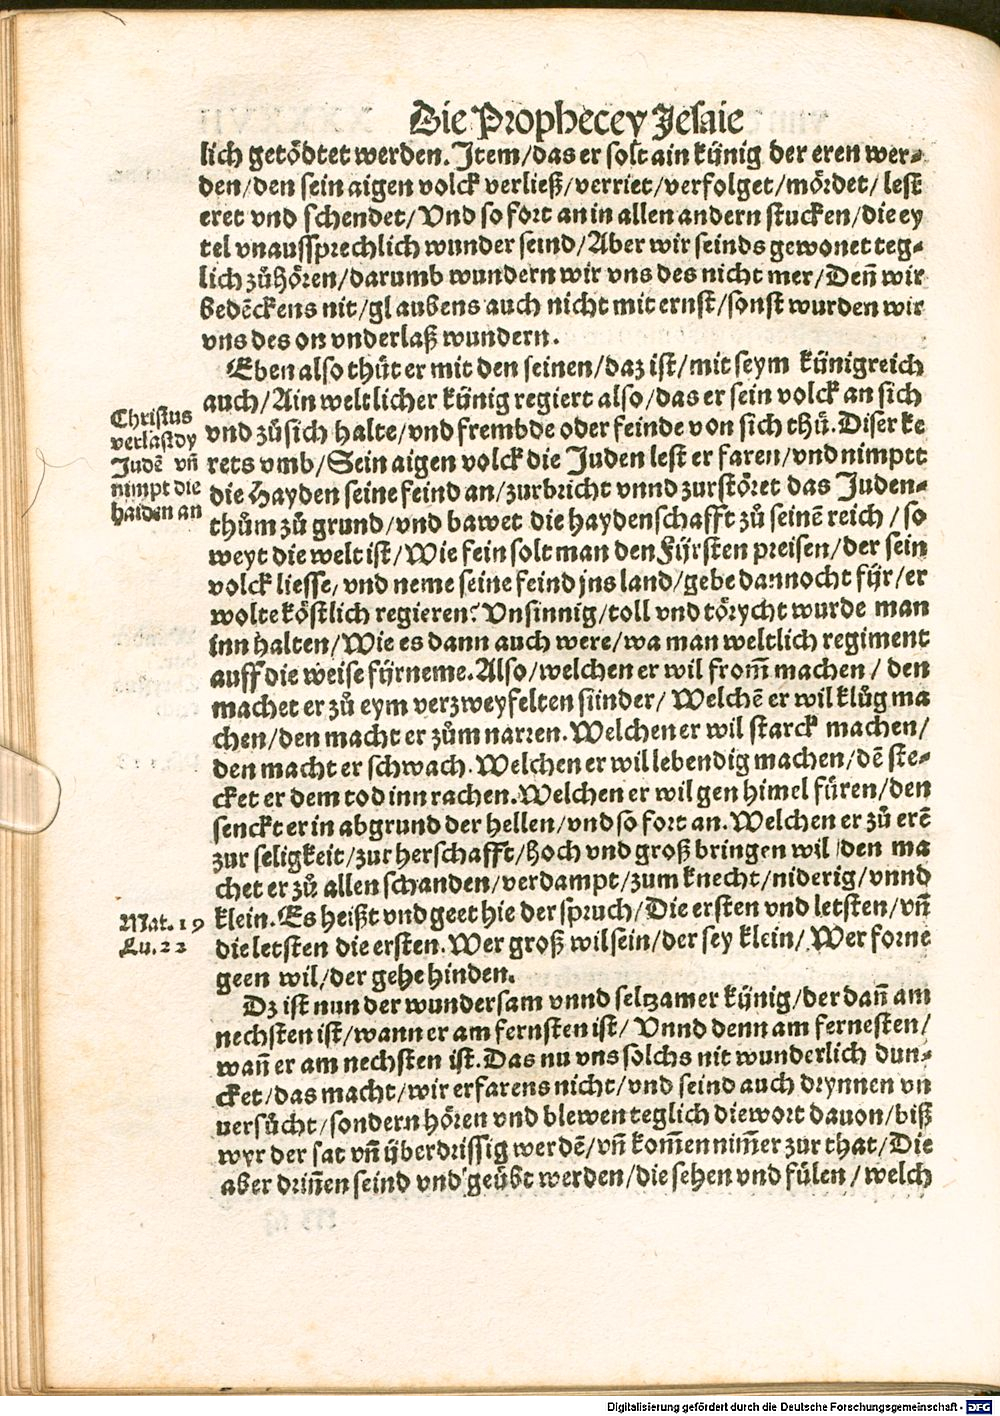 Die Prophecey Jesaie
lich getödtet werden. Item/das er solt ain künig der eren wer⸗
den/den sein aigen volck verließ/verriet/verfolget/mördet/ lest
eret vnd schendet/ Vnd so fort an in allen andern stucken/die ey
tel vnaussprechlich wunder seind/Aber wir seinds gewonet teg⸗
lich zůhören/darumb wundern wir vns des nicht mer/Deñ wir
bedēckens nit/gl aubens auch nicht mit ernst/sonst wurden wir
vns des on vnderlaß wundern.
Eben also thůt er mit den seinen/daz ist/mit seym künigreich
auch/Ain weltlicher künig regiert also/das er sein volck an sich
vnd zůsich halte/vnd frembde oder feinde von sich thů. Diser ke
rets vmb/Sein aigen volck die Juden lest er faren/vnd nimptt
die Hayden seine feind an/zurbricht vnnd zurstöret das Juden⸗
thům zů grund/vnd bawet die haydenschafft zů seinē reich /so
weyt die welt ist/Wie fein solt man den Fijrsten preisen/der sein
volck liesse/vnd neme seine feind jns land/gebe dannocht fijr/er
wolte köstlich regieren? Vnsinnig/toll vnd törycht wurde man
inn halten/Wie es dann auch were/wa man weltlich regiment
auff die weise fijrneme. Also/welchen er wil from̄ machen/ den
machet er zů eym verzweyfelten sünder/ Welchē er wil klůg ma
chen/den macht er zům narren. Welchen er wil starck machen/
den macht er schwach. Welchen er will lebendig machen/dē ste⸗
cket er dem tod inn rachen. Welchen er wil gen himel füren/den
senckt er in abgrund der hellen/vnd so fort an. Welchen er zů erē
zur seligkeit/zur herschafft/hoch vnd groß bringen wil /den ma
chet er zů allen schanden/verdampt/zum knecht/niderig/vnnd
klein. Es heißt vnd geet hie der spruch/Die ersten vnd letsten/vñ
die letsten die ersten. Wer groß wil sein/der sey klein/ Wer forne
geen wil/der gehe hinden.
Dz ist nun der wundersam vnnd seltzamer künig/der dañ am
nechsten ist/wann er am fernsten ist/ Vnnd denn am fernesten/
wañ er am nechsten ist. Das nu vns solchs nit wunderlich dun⸗
cket/das macht/wir erfarens nicht/vnd seind auch drynnen vn
uersůcht/sondern hören vnd blewen teglich die wort dauon/biß
wyr der sat vñ ijberdrissig werdē/vñ kom̄en nim̄er zur that/Die
aber driñen seind vnd geübt werden/die sehen vnd fülen/welch
Christus
verlast dz
Judē vñ
nimpt die
haiden an
Mat. 19
Lu. 22
Digitalisierung gefördert durch die Deutsche Forschungsgemeinschaft - DFG